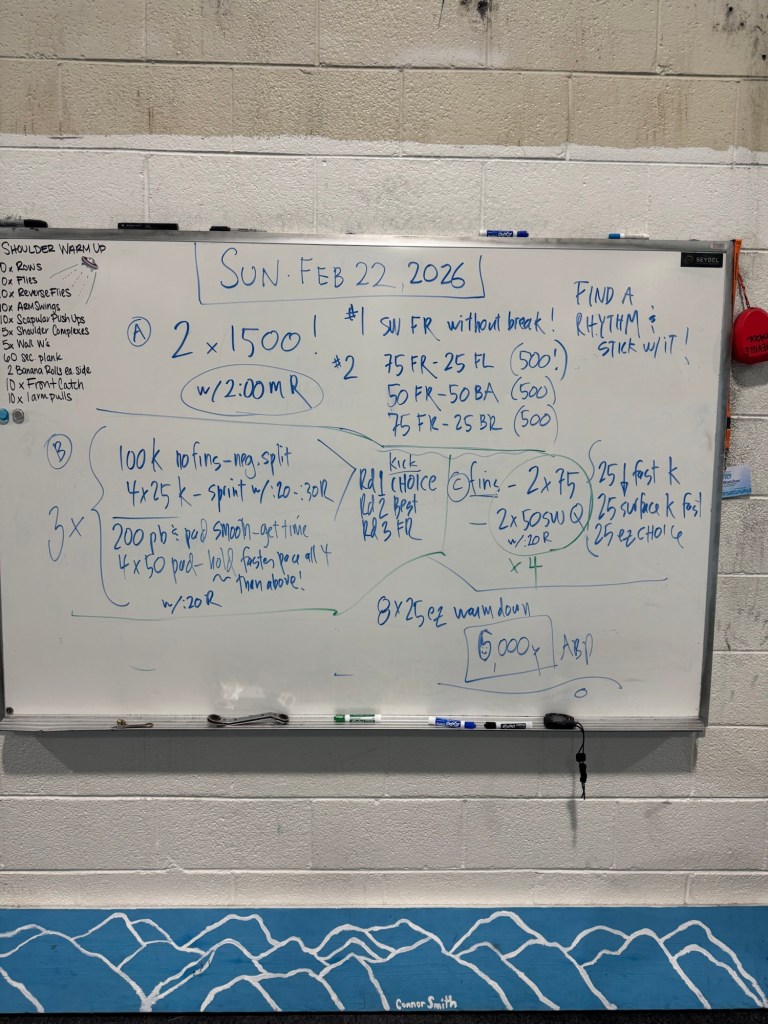 SHOULDER WARM UP
0x Rows
0x Flies
0x Reverse Flies
10x ARM Swings
10x Scapular Push Ups
5x Shoulder Complexes
5x Wall W's
60 sec. plank
2 Banana Rolls ea. side
10 x Front Catch
10 x 1 arm pulls
SUN. FEB 22, 2026
A
2 x 1500!
w/2:00 M R
#1 SW FR without break!
#2 75 FR-25 FL (500!)
50 FR-50 BA (500)
75 FR-25 BR (500)
FIND A
RHYTHM &
STICK W/IT!
B
3x
100k no fins-neg. split
4x25 k - sprint w/:20-:30R
200 pb & pad smooth-get time
4 x 50 pad-hold faster pace all 4
than above!
w/:20R
Kick
Rd 1 CHOICE
Rd 2 Best
Rd 3 FR
C fins - 2x75
- 2x50 SW Q
w/:20 R
x4
25 ↓ fast k
25 surface k fast
25 ez CHOICE
8x25 ez warmdown
6,000y ABP
SEYDEL
Connor Smith